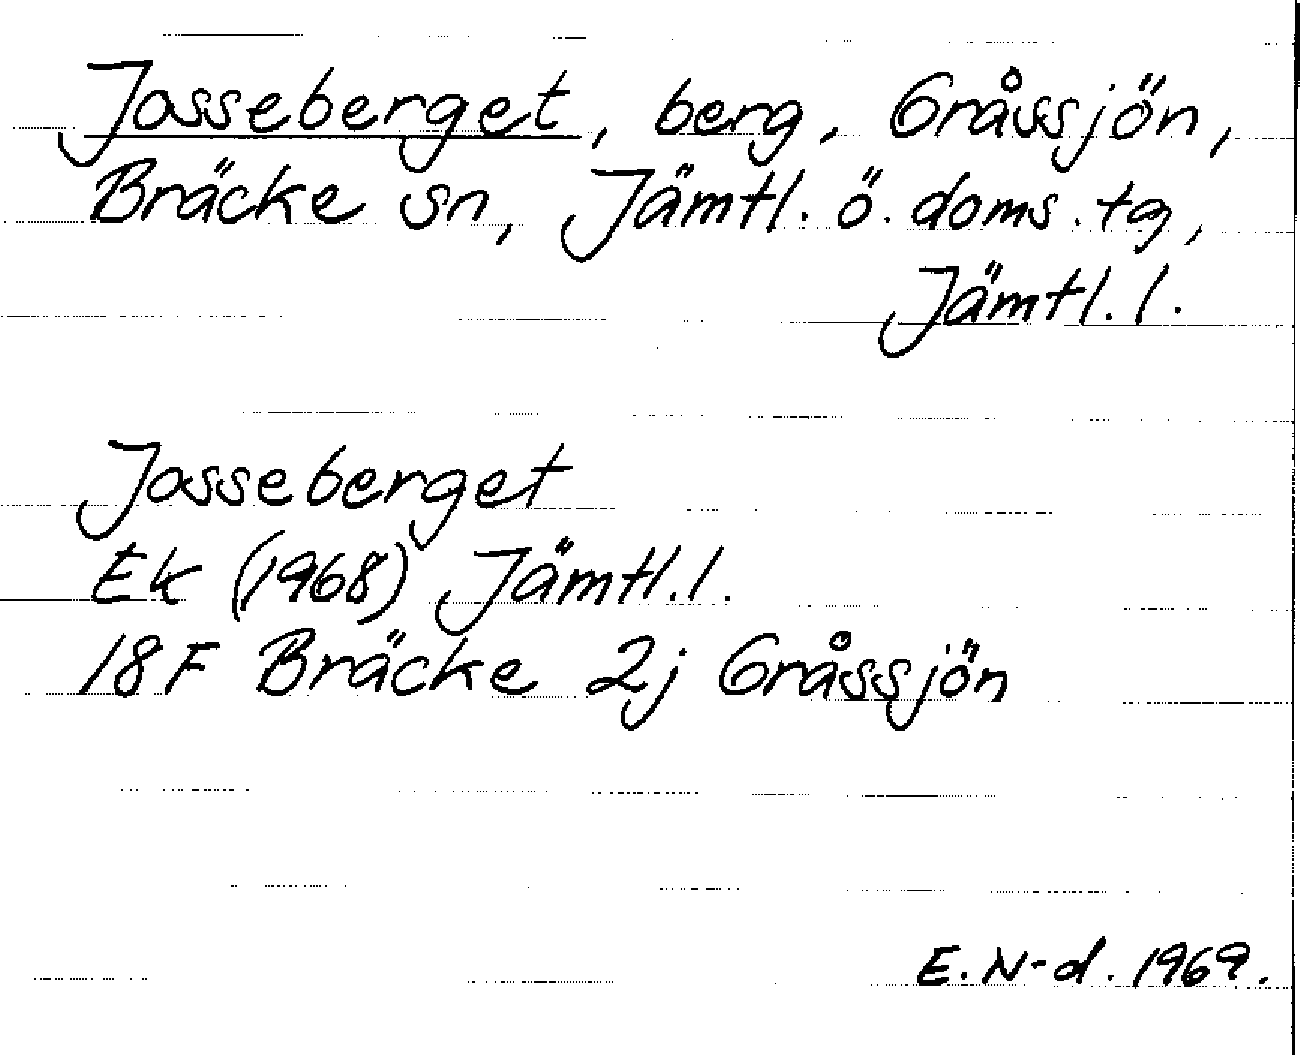 Josseberget, berg, Gråssjön,
Bräcke sn, Jämtl. ö. doms. tg,
Jämtl. l.
Josseberget
Ek (1968) Jämtl. l.
18 F Bräcke 2j Gråssjön
E. N-d. 1969.